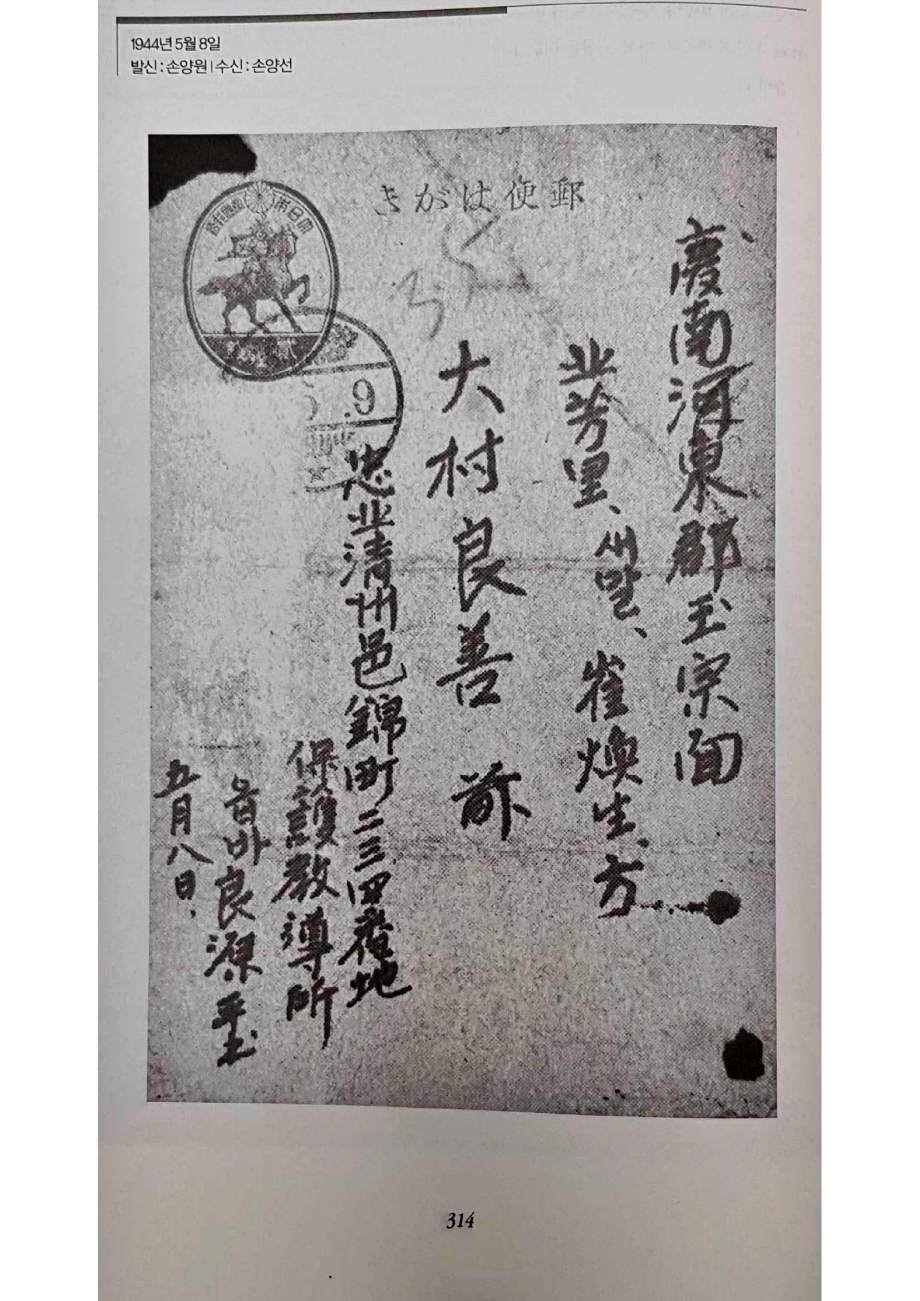 1944년 5월 8일
발신 : 손양원 | 수신 : 손양선
郵便はがき
慶南河東郡玉宗面
北芳里、새말、崔煥生、方
大村良善 前
忠北清州邑錦町二三四番地
保護教導所
옵바良源
五月八日.
.9
314